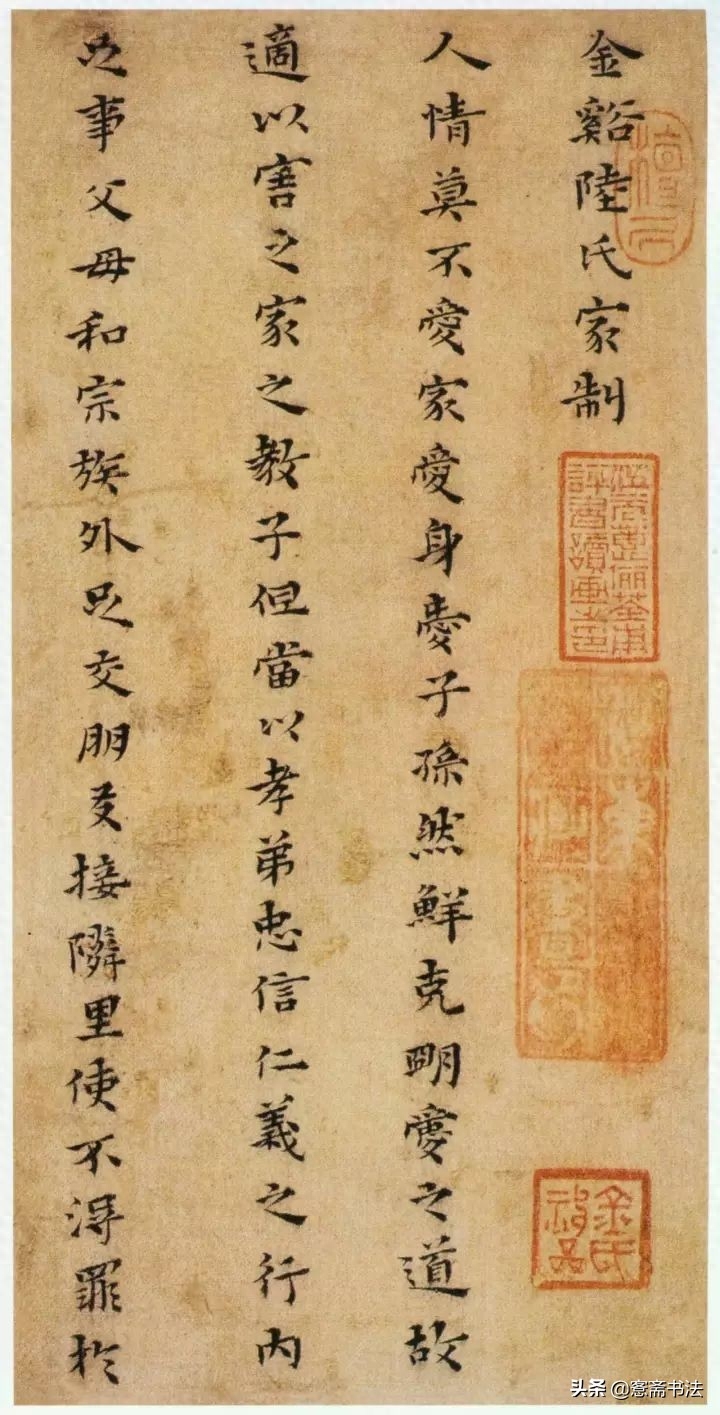 金谿陸氏家制
人情莫不愛家愛身愛子孫然鮮克明愛之道故
適以害之家之教子但當以孝弟忠信仁義之行内
足事父母和宗族外足交朋友接隣里使不得罪於
金氏
祕品
头条 @窓斋书法